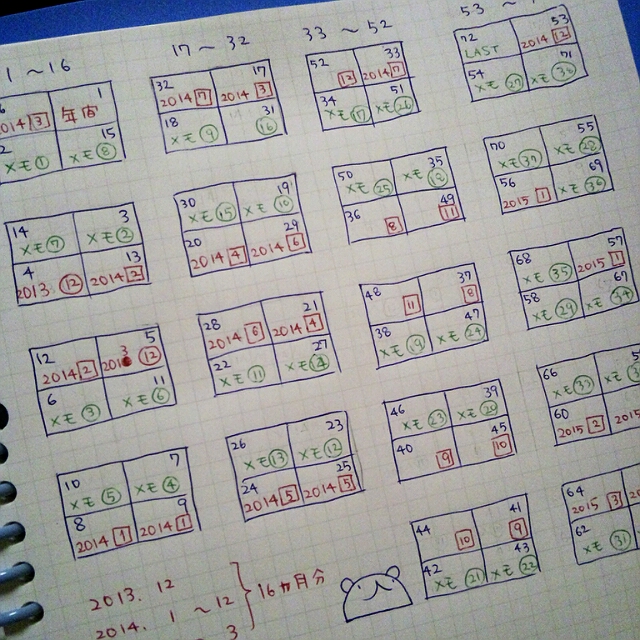 1 ~ 16
17 ~ 32
33 ~ 52
53 ~
1
2014 3 年宙
2 15
メモ 1 メモ 8
14 3
メモ 7 メモ 2
4 13
2013. 12 2014 2
12 5
2014 2 12
6 11
メモ 3 メモ 6
10 7
メモ 5 メモ 4
8 9
2014 1 2014 1
32 17
2014 7 2014 3
18 31
メモ 9 16
30 19
メモ 15 メモ 10
20 29
2014 4 2014 6
28 21
2014 6 2014 4
22 27
メモ 11 メモ
26 23
メモ 13 メモ 12
24 25
2014 5 2014 5
52 33
12 2014 7
34 51
メモ 17 メモ 26
50 35
メモ 25 メモ
36 49
8 11
48 37
11 8
38 47
メモ 19 メモ 24
46 39
メモ 23 メモ 20
40 45
9 10
44 41
10 9
42 43
メモ 21 メモ 22
72 53
LAST 2014 12
54 71
メモ 27 メモ 36
70 55
メモ メモ 28
56 69
2015 1 メモ
68 57
メモ 35 2015 1
58 67
メモ 29 メモ 34
66
メモ メモ
60
2015 2 2015
64
2015 3
62
メモ 31
2013. 12
2014. 1 ~ 12
3
16ヵ月分